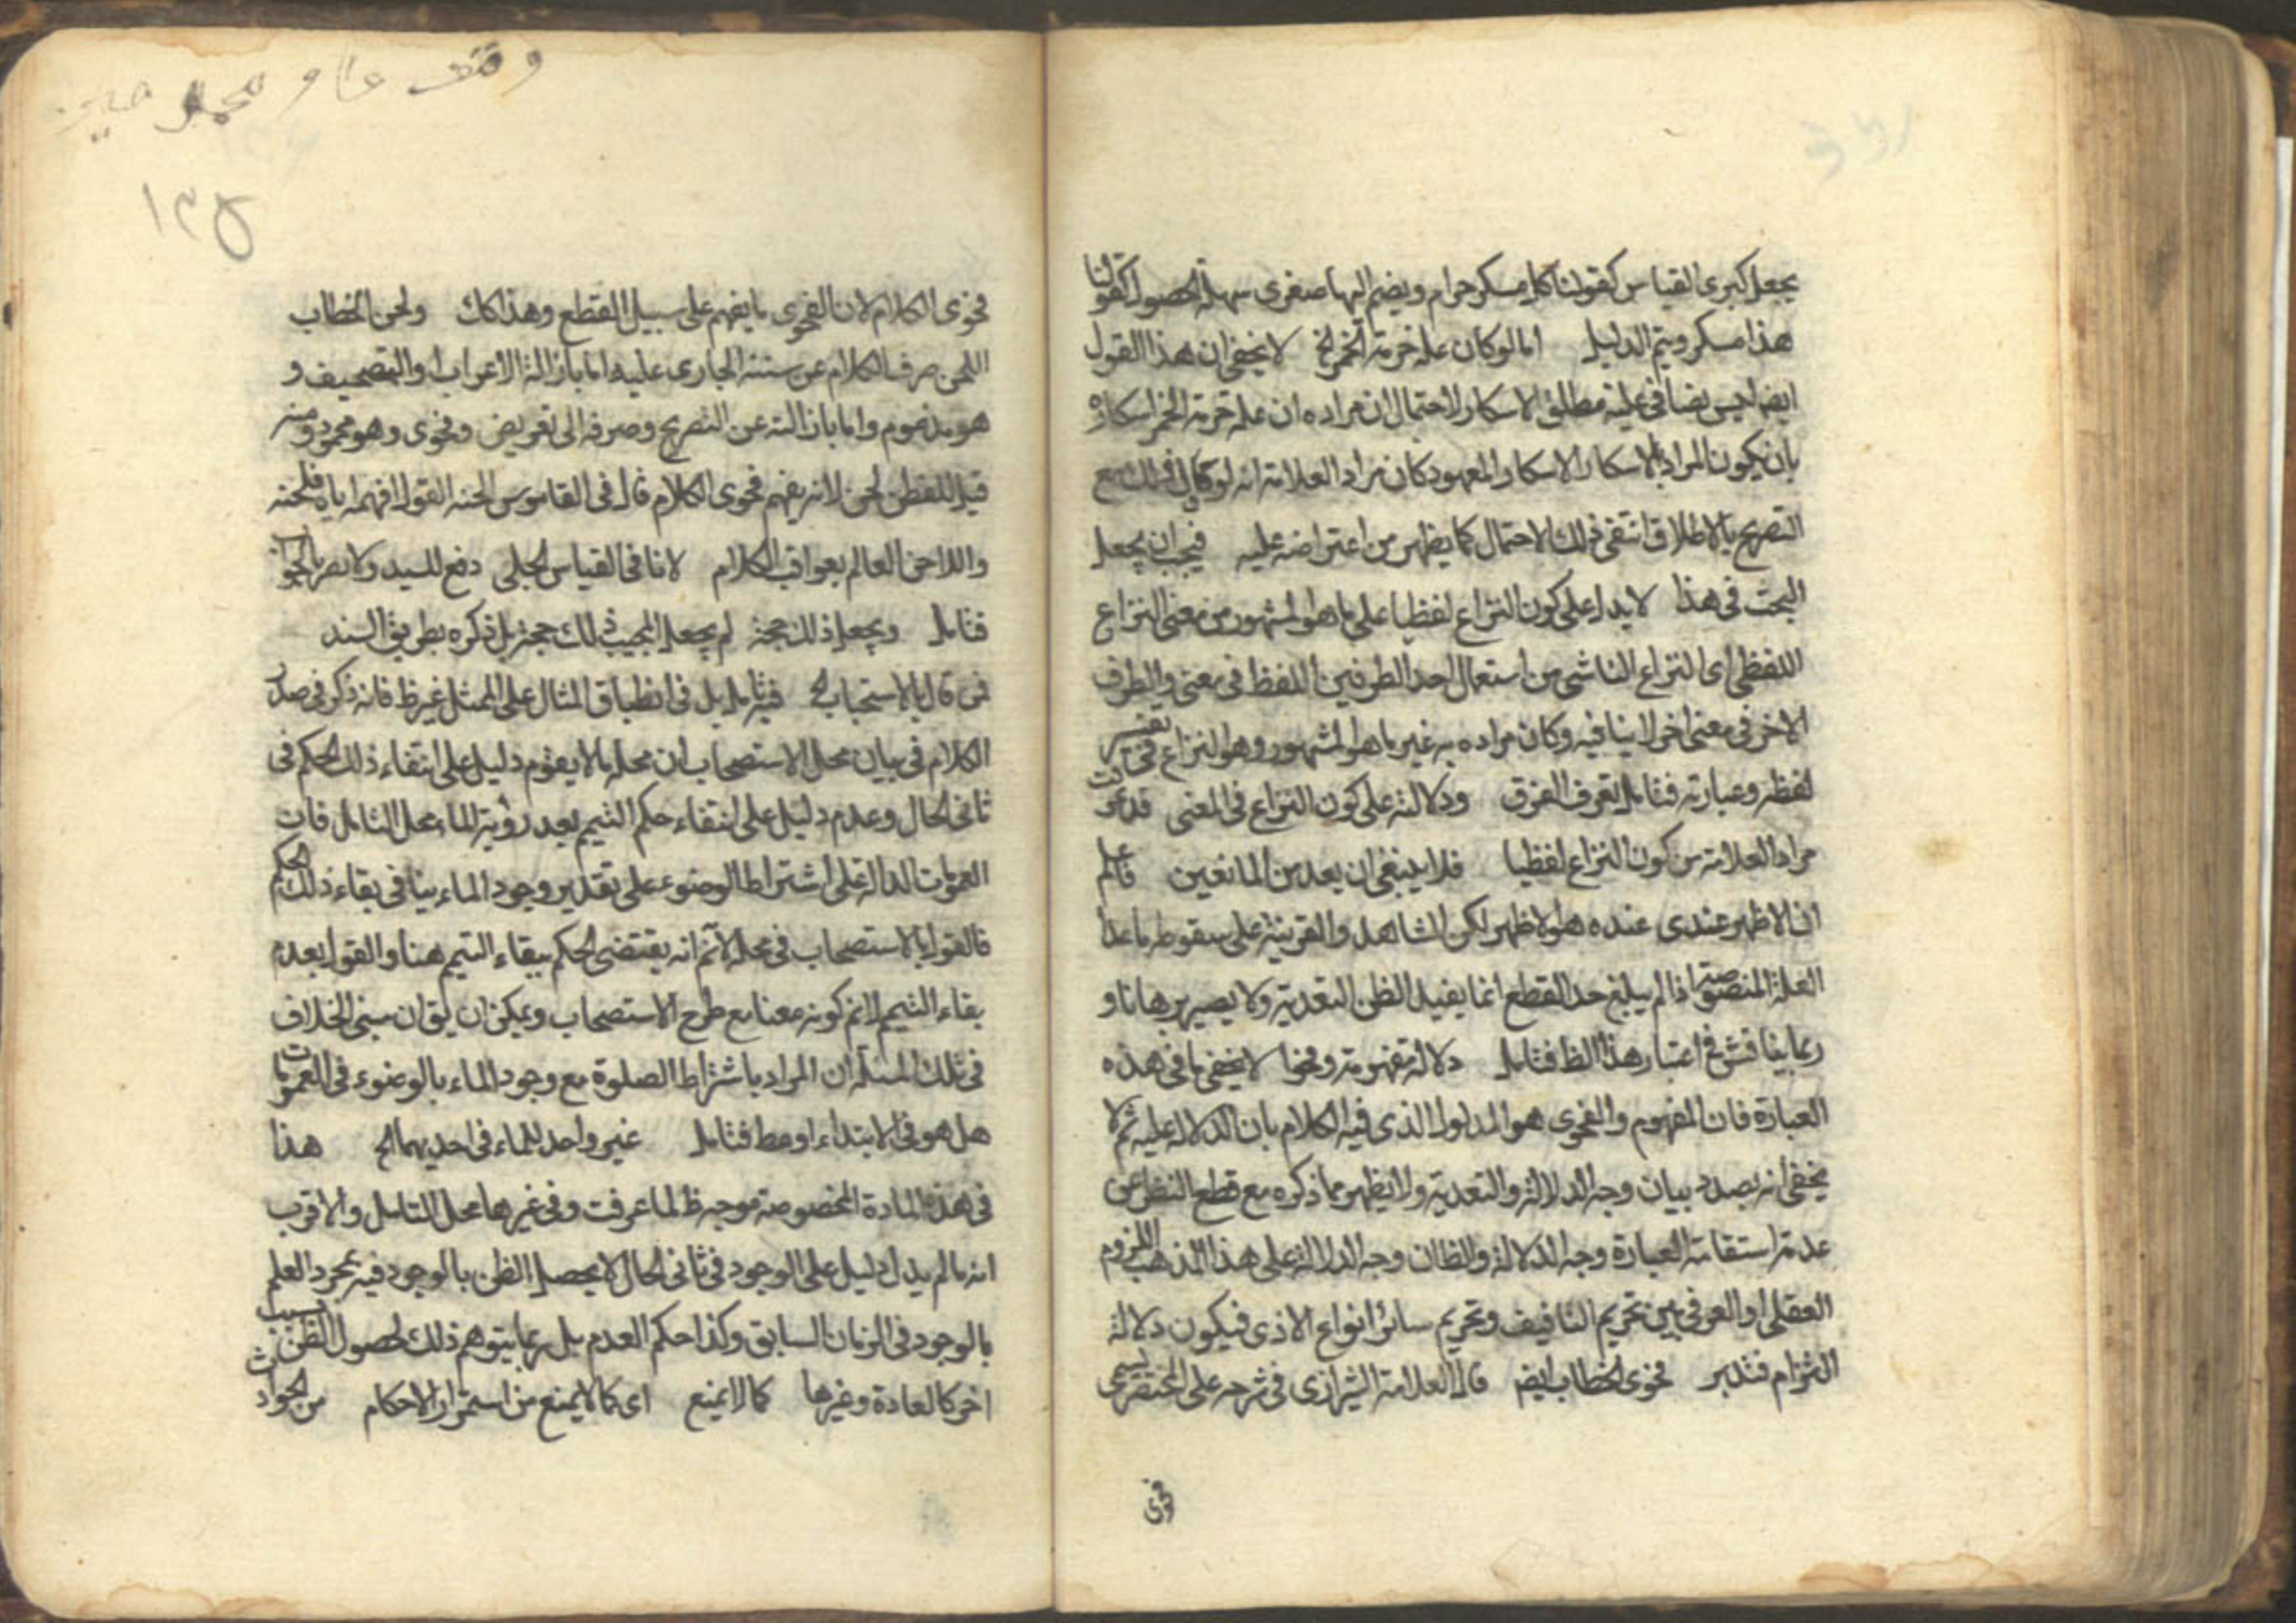 يجعل كبرى القياس كقولنا كل مسكر حرام ويضم اليها صغرى سهلة الحصول كقولنا
هذا مسكر ويتم الدليل اما لو كان علة حرمة الخمر الخ لا يخفى ان هذا القول
ايضا ليس نصا في علية مطلق الاسكار لاحتمال ان مراده ان علة حرمة الخمر اسكاره
بان يكون المراد بالاسكار الاسكار المعهود كان مراد العلامة انه لو قال ذلك مع
التصريح بالاطلاق انتفى ذلك الاحتمال كما يظهر من اعتراضه عليه فيجب ان يجعل
البحث في هذا لا يدل على كون النزاع لفظيا على ما هو المشهور من معنى النزاع
اللفظي اى النزاع الناشى من استعمال احد الطرفين اللفظ في معنى والطرف
الاخر في معنى اخر لا ينافيه وكان مراده به غير ما هو المشهور وهو النزاع في تفسير
لفظه وعبارته فتامل تعرف الفرق ودلالته على كون النزاع في المعنى قد عرفت
مراد العلامة من كون النزاع لفظيا فلا ينبغي ان يعد من المانعين فاعلم
ان الاظهر عندى عنده هو الاظهر لكن الشاهد والقرينة على سقوط ما عدا
العلة المنصوصة اذا لم يبلغ حد القطع انما يفيد الظن التعدية ولا يصير برهانا و
ربما يناقش في اعتبار هذا الظ فتامل دلالة مفهومه وفحوا لا يخفى ما في هذه
العبارة فان المفهوم والفحوى هو المدلول الذى فيه الكلام بان الدلالة عليه ثم لا
يخفى انه بصدد بيان وجه الدلالة والتعدية ولا يظهر مما ذكره مع قطع النظر عن
عدم استقامة العبارة وجه الدلالة والظ ان وجه الدلالة على هذا المذهب اللزوم
العقلى او العرفى بين تحريم التافيف وتحريم سائر انواع الاذى فيكون دلالة
التزام فتدبر فحوى الخطاب ايضا قال العلامة الشيرازى في شرحه على المختصر يسمى
فحوى
وقف محمد حسين
١٣٥
فحوى الكلام لان الفحوى ما يفهم على سبيل القطع وهذا كك ولحن الخطاب
اللحن صرف الكلام عن سننه الجارى عليه اما بازالة الاعراب او التصحيف و
هو مذموم واما بازالته عن التصريح وصرفه الى تعريض وفحوى وهو محمود ومنه
قيل للفطن لحن لانه يفهم فحوى الكلام قال في القاموس الحنه القول افهمه اياه فلحنه
واللاحن العالم بعواقب الكلام لانا في القياس الجلى دفع للسيد ولا يضر بالجواب
فتامل ويجعل ذلك حجة لم يجعل المجيب ذلك حجة بل ذكره بطريق السند
فمن قال بالاستصحاب الخ فيه تامل بل في انطباق المثال على الممثل غير ظ فانه ذكر في صدر
الكلام في بيان محل الاستصحاب ان محله ما لا يقوم دليل على انتفاء ذلك الحكم في
ثانى الحال وعدم دليل على انتفاء حكم التيمم بعد رؤية الماء محل التامل فان
العمومات الدالة على اشتراط الوضوء على تقدير وجود الماء ينافى بقاء ذلك الحكم
فالقول بالاستصحاب في محله لا نم انه يقتضى الحكم ببقاء التيمم هنا والقول بعدم
بقاء التيمم لا نم كونه معنا مع طرح الاستصحاب ويمكن ان يق ان مبنى الخلاف
في تلك المسئلة ان المراد باشتراط الصلوة مع وجود الماء بالوضوء في العمومات
هل هو في الابتداء او مط فتامل غير واجد للماء في احديهما الخ هذا
في هذه المادة المخصوصة موجه ظ لما عرفت وفي غيرها محل التامل والاقرب
انه ما لم يدل دليل على الوجود في ثانى الحال لا يحصل الظن بالوجود فيه بمجرد العلم
بالوجود في الزمان السابق وكذا حكم العدم بل ربما يتوهم ذلك لحصول الظن بسبب
اخر كالعادة وغيرها كما لا يمنع اى كما لا يمنع من استمرار الاحكام من الحوادث